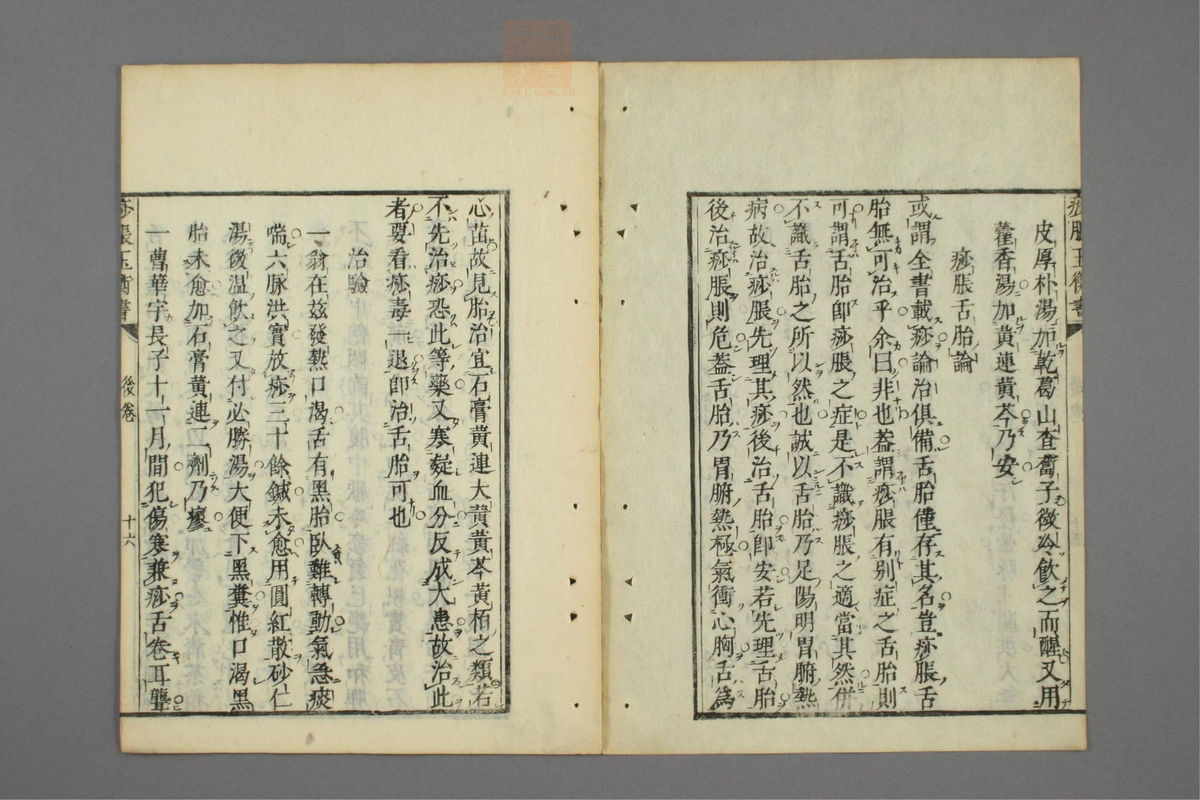 痧脹玉衡書
皮厚朴湯加乾葛山查蔔子微冷飲之而醒又用
藿香湯加黃連黃芩乃安
痧脹舌胎論
或謂全書載痧論治俱備舌胎僅存其名豈痧脹舌
胎無可治乎余曰非也蓋謂痧脹有別症之舌胎則
可謂舌胎卽痧脹之症是不識痧脹之適當其然併
不識舌胎之所以然也誠以舌胎乃足陽明胃腑熱
病故治痧脹先理其痧後治舌胎卽安若先理舌胎
後治痧脹則危蓋舌胎乃胃腑熱極氣衝心胸舌為
心苗故見胎治宜石膏黃連大黃黃芩黃栢之類若
不先治痧恐此等藥又寒凝血分反成大患故治此
者要看痧毒一退卽治舌胎可也
治驗
一翁在茲發熱口渴舌有黑胎臥難轉動氣急痰
喘六脉洪實放痧三十餘鍼未愈用圓紅散砂仁
湯後温飲之又付必勝湯大便下黑糞惟口渴黑
胎未愈加石膏黃連二劑乃瘳
一曹華宇長子十一月間犯傷寒兼痧舌卷耳聾
痧脹玉衡書
後卷
十六
zysj.com.cn